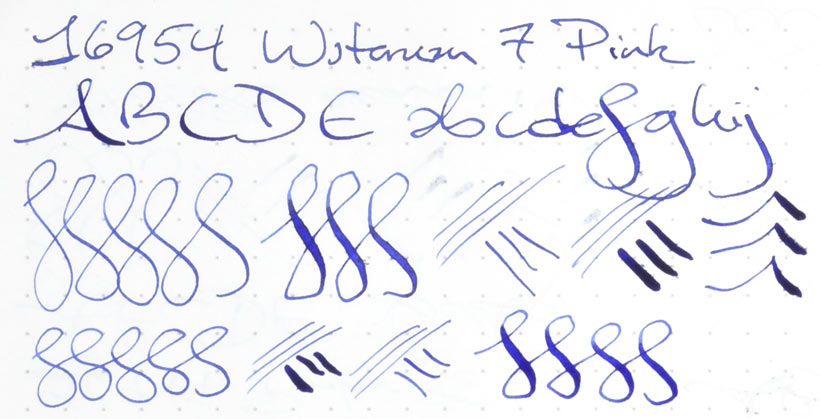 16954 Waterman 7 Pink
ABCDE abcdefghij